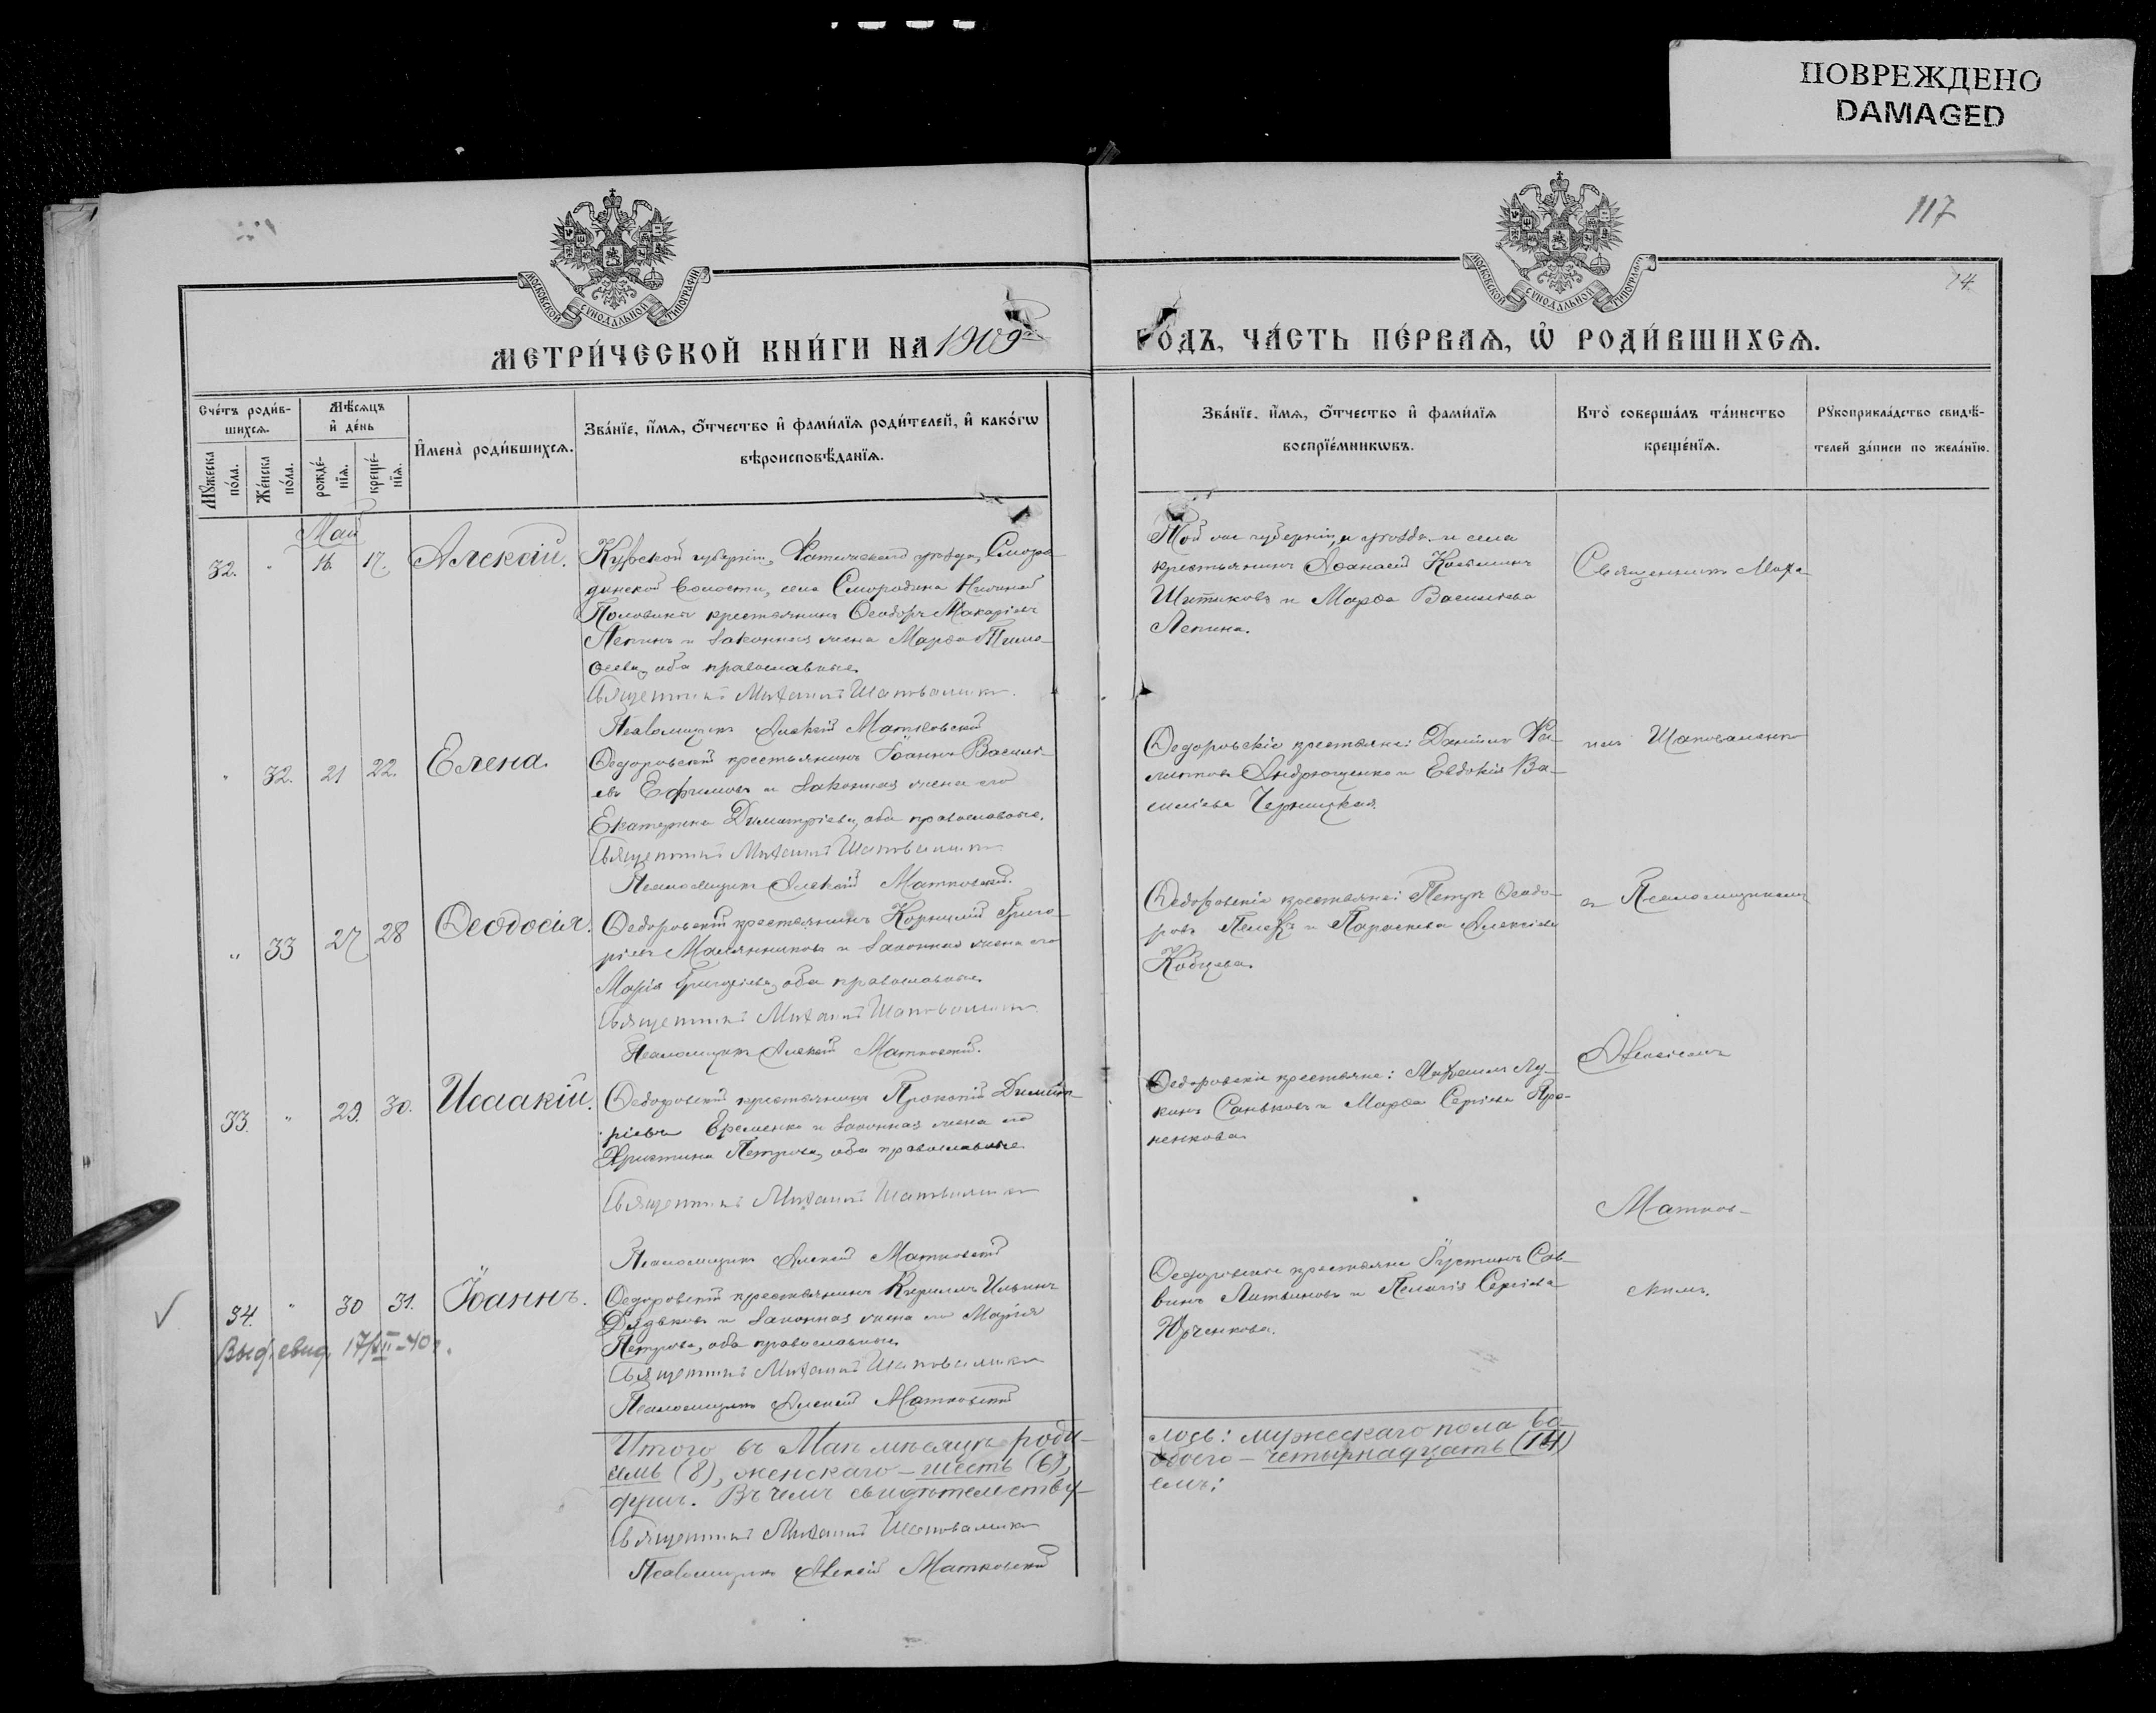 ПОВРЕЖДЕНО
DAMAGED
117
74
МОСКОВСКОЙ СѴНОДАЛЬНОЙ ТИПОГРАФІИ
МОСКОВСКОЙ СѴНОДАЛЬНОЙ ТИПОГРАФІИ
МЕТРИ́ЧЕСКОЙ КНИ́ГИ НА 1909
ГОДЪ, ЧА́СТЬ ПЕ́РВАѦ, Ѡ҆ РОДИ́ВШИХСѦ.
Сче́тъ роди́в-
шихсѧ.
Мѣ́сѧцъ
и҆ де́нь
Мꙋ́жеска
по́ла.
Же́нска
по́ла.
рожде́-
нїѧ.
креще́-
нїѧ.
И҆мена̀ роди́вшихсѧ.
Зва́нїе, и҆́мѧ, ѻ҆́тчество и҆ фами́лїѧ роди́телей, и҆ како́гѡ
вѣроисповѣ́данїѧ.
Зва́нїе, и҆́мѧ, ѻ҆́тчество и҆ фами́лїѧ
воспрїе́мникѡвъ.
Кто̀ соверша́лъ та́инство
креще́нїѧ.
Рꙋкоприкла́дство свидѣ́-
телей за́писи по жела́нїю.
Май
32. " 16. 17. Алексій.
Курской губерніи, Фатежскаго уѣзда, Сморо-
динской волости, села Смородина
крестьянинъ Ѳеодоръ Макаріевъ
Лепинъ и законная жена Марѳа Тимо-
ѳеева, оба православные.
Священникъ Михаилъ Шаповаленко.
Псаломщикъ Алексій Матковскій
губерніи, и уѣзда и села
крестьянинъ Аѳанасій Косьминъ
Шитиковъ и Марѳа Васильева
Лепина.
Священникъ Миха-
" 32. 21 22. Елена.
Ѳедоровскій крестьянинъ Іоаннъ Василь-
евъ Ефимовъ и законная жена его
Екатерина Димитріева, оба православные.
Священникъ Михаилъ Шаповаленко
Псаломщикъ Алексій Матковскій.
Ѳедоровскіе крестьяне: Даніилъ Фи-
липповъ Андрющенко и Евдокія Ва-
силіева Черницкая.
илъ Шаповаленко
" 33 27 28 Ѳеодосія.
Ѳедоровскій крестьянинъ Корнилій Григо-
ріевъ Маслянниковъ и законная жена его
Марія Григоріева, оба православные.
Священникъ Михаилъ Шаповаленко
Псаломщикъ Алексій Матковскій.
Ѳедоровскіе крестьяне: Петръ Ѳеодо-
ровъ и Параскева Алексіева
Кобцева.
съ Псаломщикомъ
33. " 29. 30. Исаакій.
Ѳедоровскій крестьянинъ Прокопій Димит-
ріевъ Еременко и законная жена его
Христина Петрова, оба православные
Священникъ Михаилъ Шаповаленко
Псаломщикъ Алексій Матковскій
Ѳедоровскіе крестьяне: Михаилъ Лу-
кинъ Саньковъ и Марѳа Сергіева Про-
ненкова.
Алексіемъ
Матков-
34. " 30 31. Іоаннъ.
Ѳедоровскій крестьянинъ Кириллъ Ильинъ
Дядьковъ и законная жена его Марія
Петрова, оба православные.
Священникъ Михаилъ Шаповаленко
Псаломщикъ Алексій Матковскій
Ѳедоровскіе крестьяне Іустинъ Сав-
винъ Литвиновъ и Пелагія Сергіева
Юрченкова.
скимъ.
Выд. свид. 17/VII-40 г.
Итого въ Маѣ мѣсяцѣ роди-
лось: мужескаго пола во-
семь (8), женскаго – шесть (6),
обоего – четырнадцать (14)
душъ. Въ чемъ свидѣтельству-
емъ:
Священникъ Михаилъ Шаповаленко
Псаломщикъ Алексій Матковскій